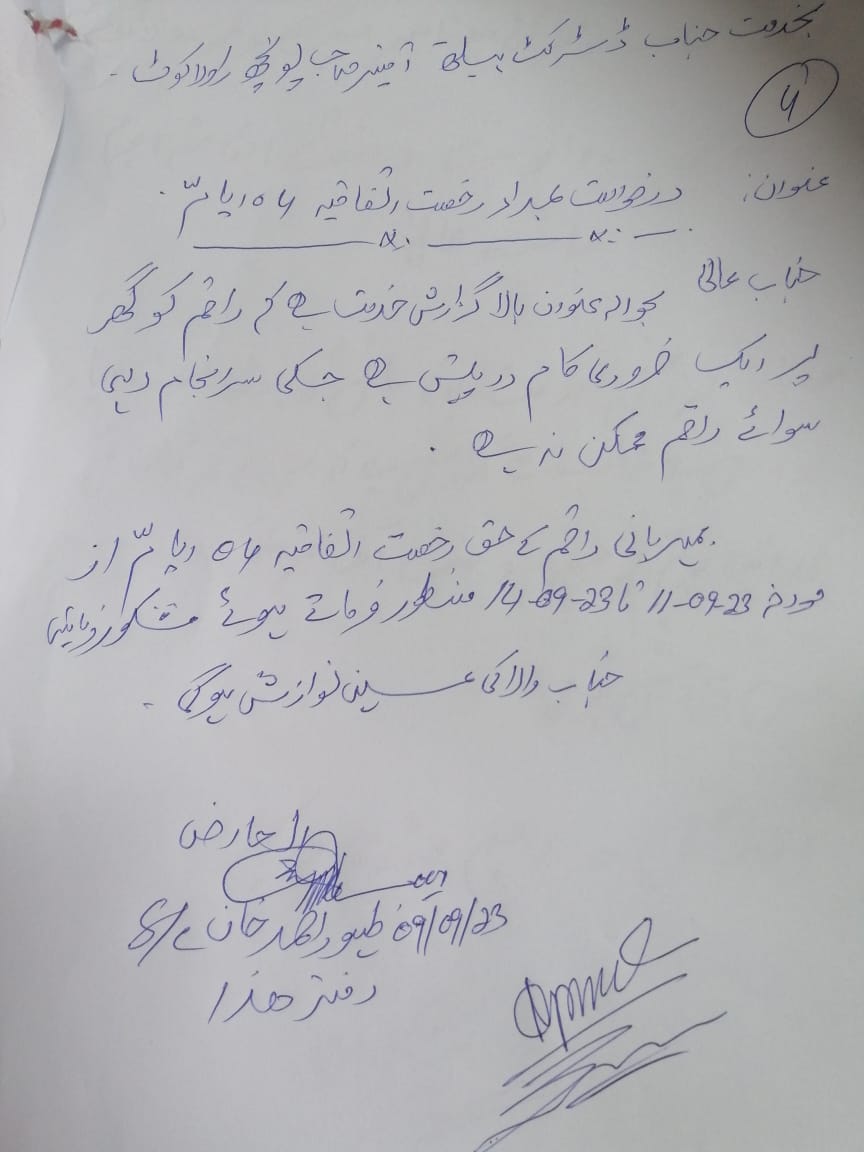 بخدمت جناب ڈسٹرکٹ ہیلتھ آفیسر صاحب پونچھ راولاکوٹ ۔
4
عنوان: درخواست بمراد رخصت اتفاقیہ 04 ایام ۔
جناب عالی
بحوالہ عنوان بالا گزارش خدمت ہے کہ راقم کو گھر
پر ایک ضروری کام درپیش ہے جسکی سرانجام دہی
سوائے راقم ممکن نہ ہے ۔
بمہربانی راقم کے حق رخصت اتفاقیہ 04 ایام از
مورخہ 11-09-23 تا 14-09-23 منظور فرماتے ہوئے مشکور فرمائیں
جناب والا کی عین نوازش ہوگی ۔
العارض
09/09/23 احمد خان
دفتر ھذا